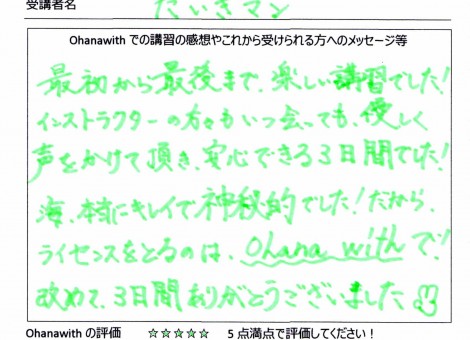 受講者名 だいきマン
Ohanawith での講習の感想やこれから受けられる方へのメッセージ等
最初から最後まで、楽しい講習でした!
インストラクターの方々もいつ会っても、優しく
声をかけて頂き、安心できる3日間でした!
海、本当にキレイで神秘的でした!だから、
ライセンスをとるのは、Ohana withで!
改めて、3日間ありがとうございました
Ohanawith の評価 ☆☆☆☆☆ 5 点満点で評価してください!